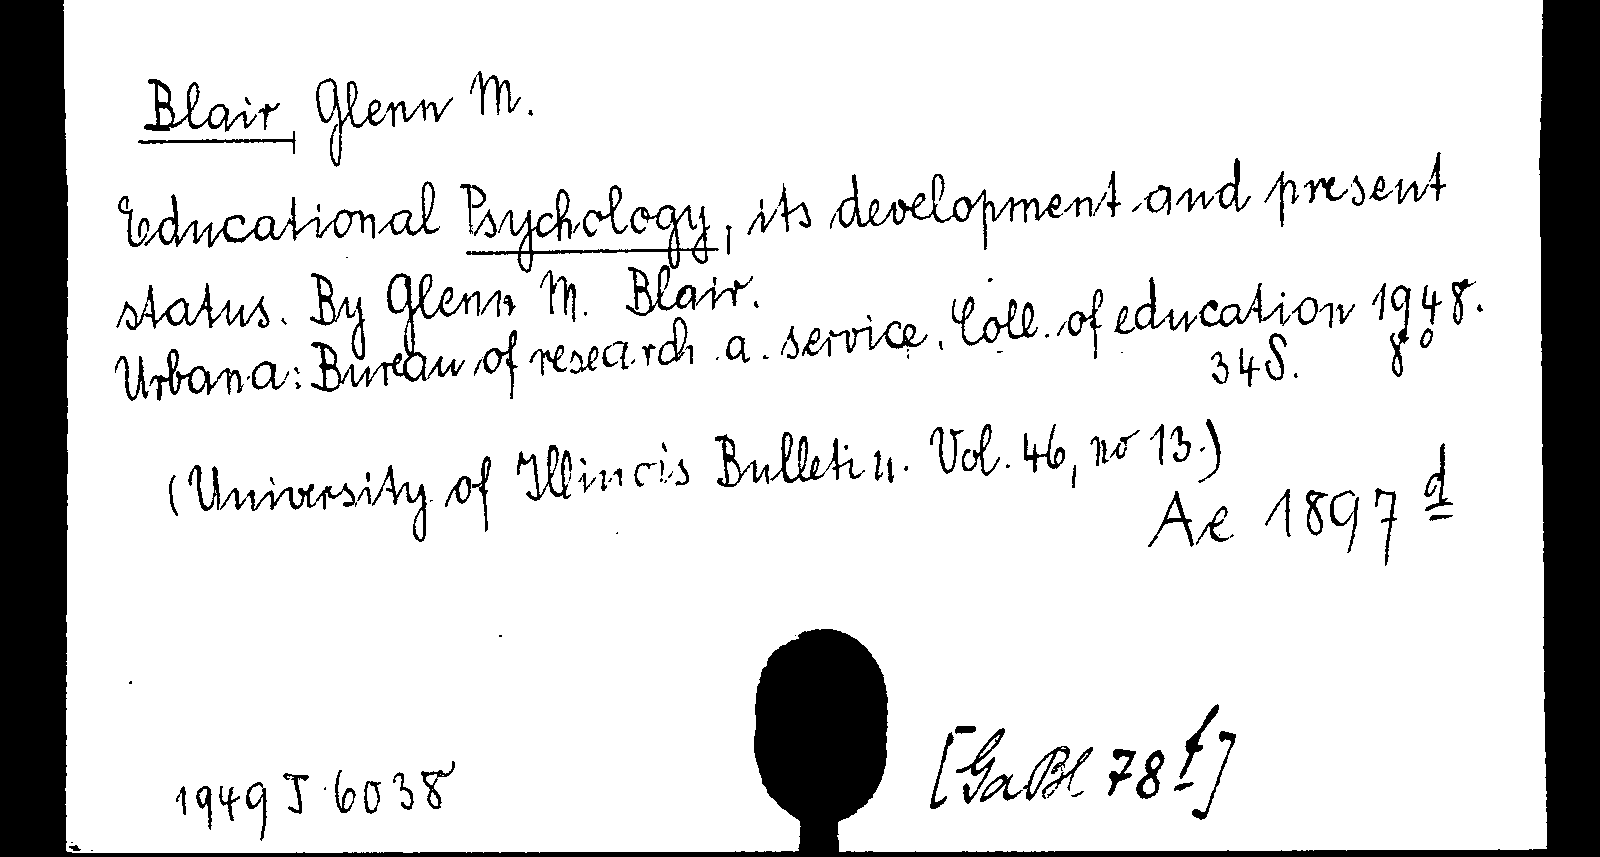 Blair, Glenn M.
Educational Psychology, its development and present
status. By Glenn M. Blair.
Urbana: Bureau of research a. service. Coll. of education 1948.
34 S. 8°
(University of Illinois Bulletin. Vol. 46, no 13.)
Ae 1897 d
1949 J 6038
[GaBl 78 f]